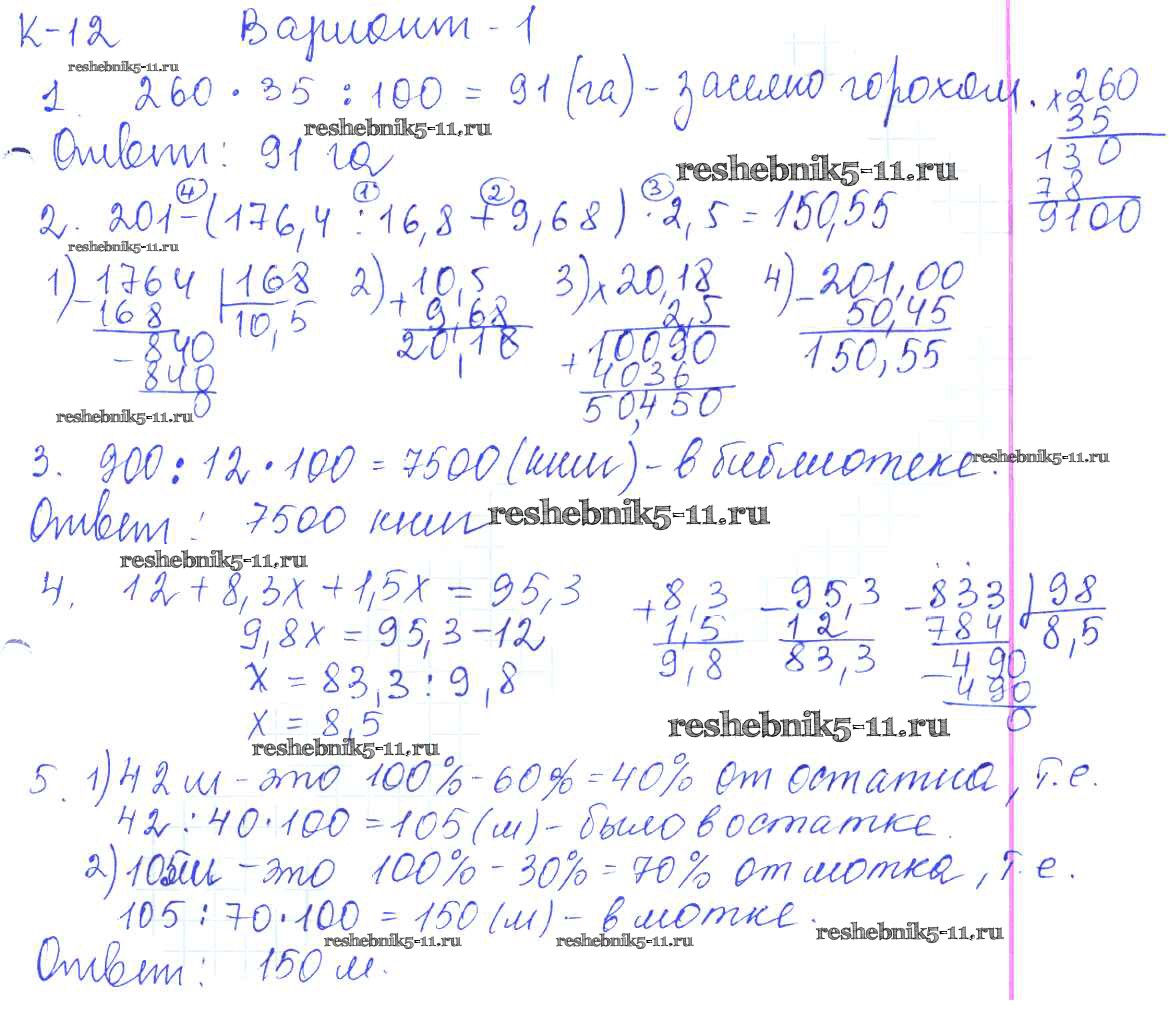 К-12 Вариант - 1
reshebnik5-11.ru
1 260 · 35 : 100 = 91 (га) - засеяно горохом.
× 260
35
130 0
78
9100
reshebnik5-11.ru
Ответ: 91 га
reshebnik5-11.ru
④ ① ② ③
2. 201 - (176,4 : 16,8 + 9,68) · 2,5 = 150,55
reshebnik5-11.ru
1) - 1764 | 168
168 10,5
- 840
840
0
2) + 10,5
9,68
20,18
3) × 20,18
2,5
+ 10090
4036
50,450
4) - 201,00
50,45
150,55
reshebnik5-11.ru
3. 900 : 12 · 100 = 7500 (книг) - в библиотеке.
reshebnik5-11.ru
Ответ: 7500 книг
reshebnik5-11.ru
reshebnik5-11.ru
4. 12 + 8,3x + 1,5x = 95,3
9,8x = 95,3 - 12
x = 83,3 : 9,8
x = 8,5
+ 8,3
1,5
9,8
- 95,3
12
83,3
- 833 | 98
784 8,5
- 490
490
0
reshebnik5-11.ru
reshebnik5-11.ru
5. 1) 42 м - это 100% - 60% = 40% от остатка, т.е.
42 : 40 · 100 = 105 (м) - было в остатке.
2) 105 м - это 100% - 30% = 70% от мотка, т.е.
105 : 70 · 100 = 150 (м) - в мотке.
reshebnik5-11.ru
reshebnik5-11.ru
reshebnik5-11.ru
Ответ: 150 м.